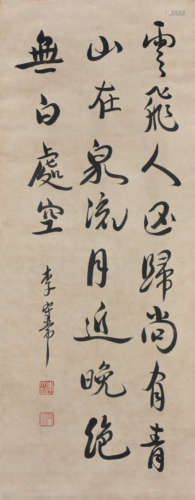 雲飛人因歸尚有青
山在泉流月近晚絶
無白處空
李